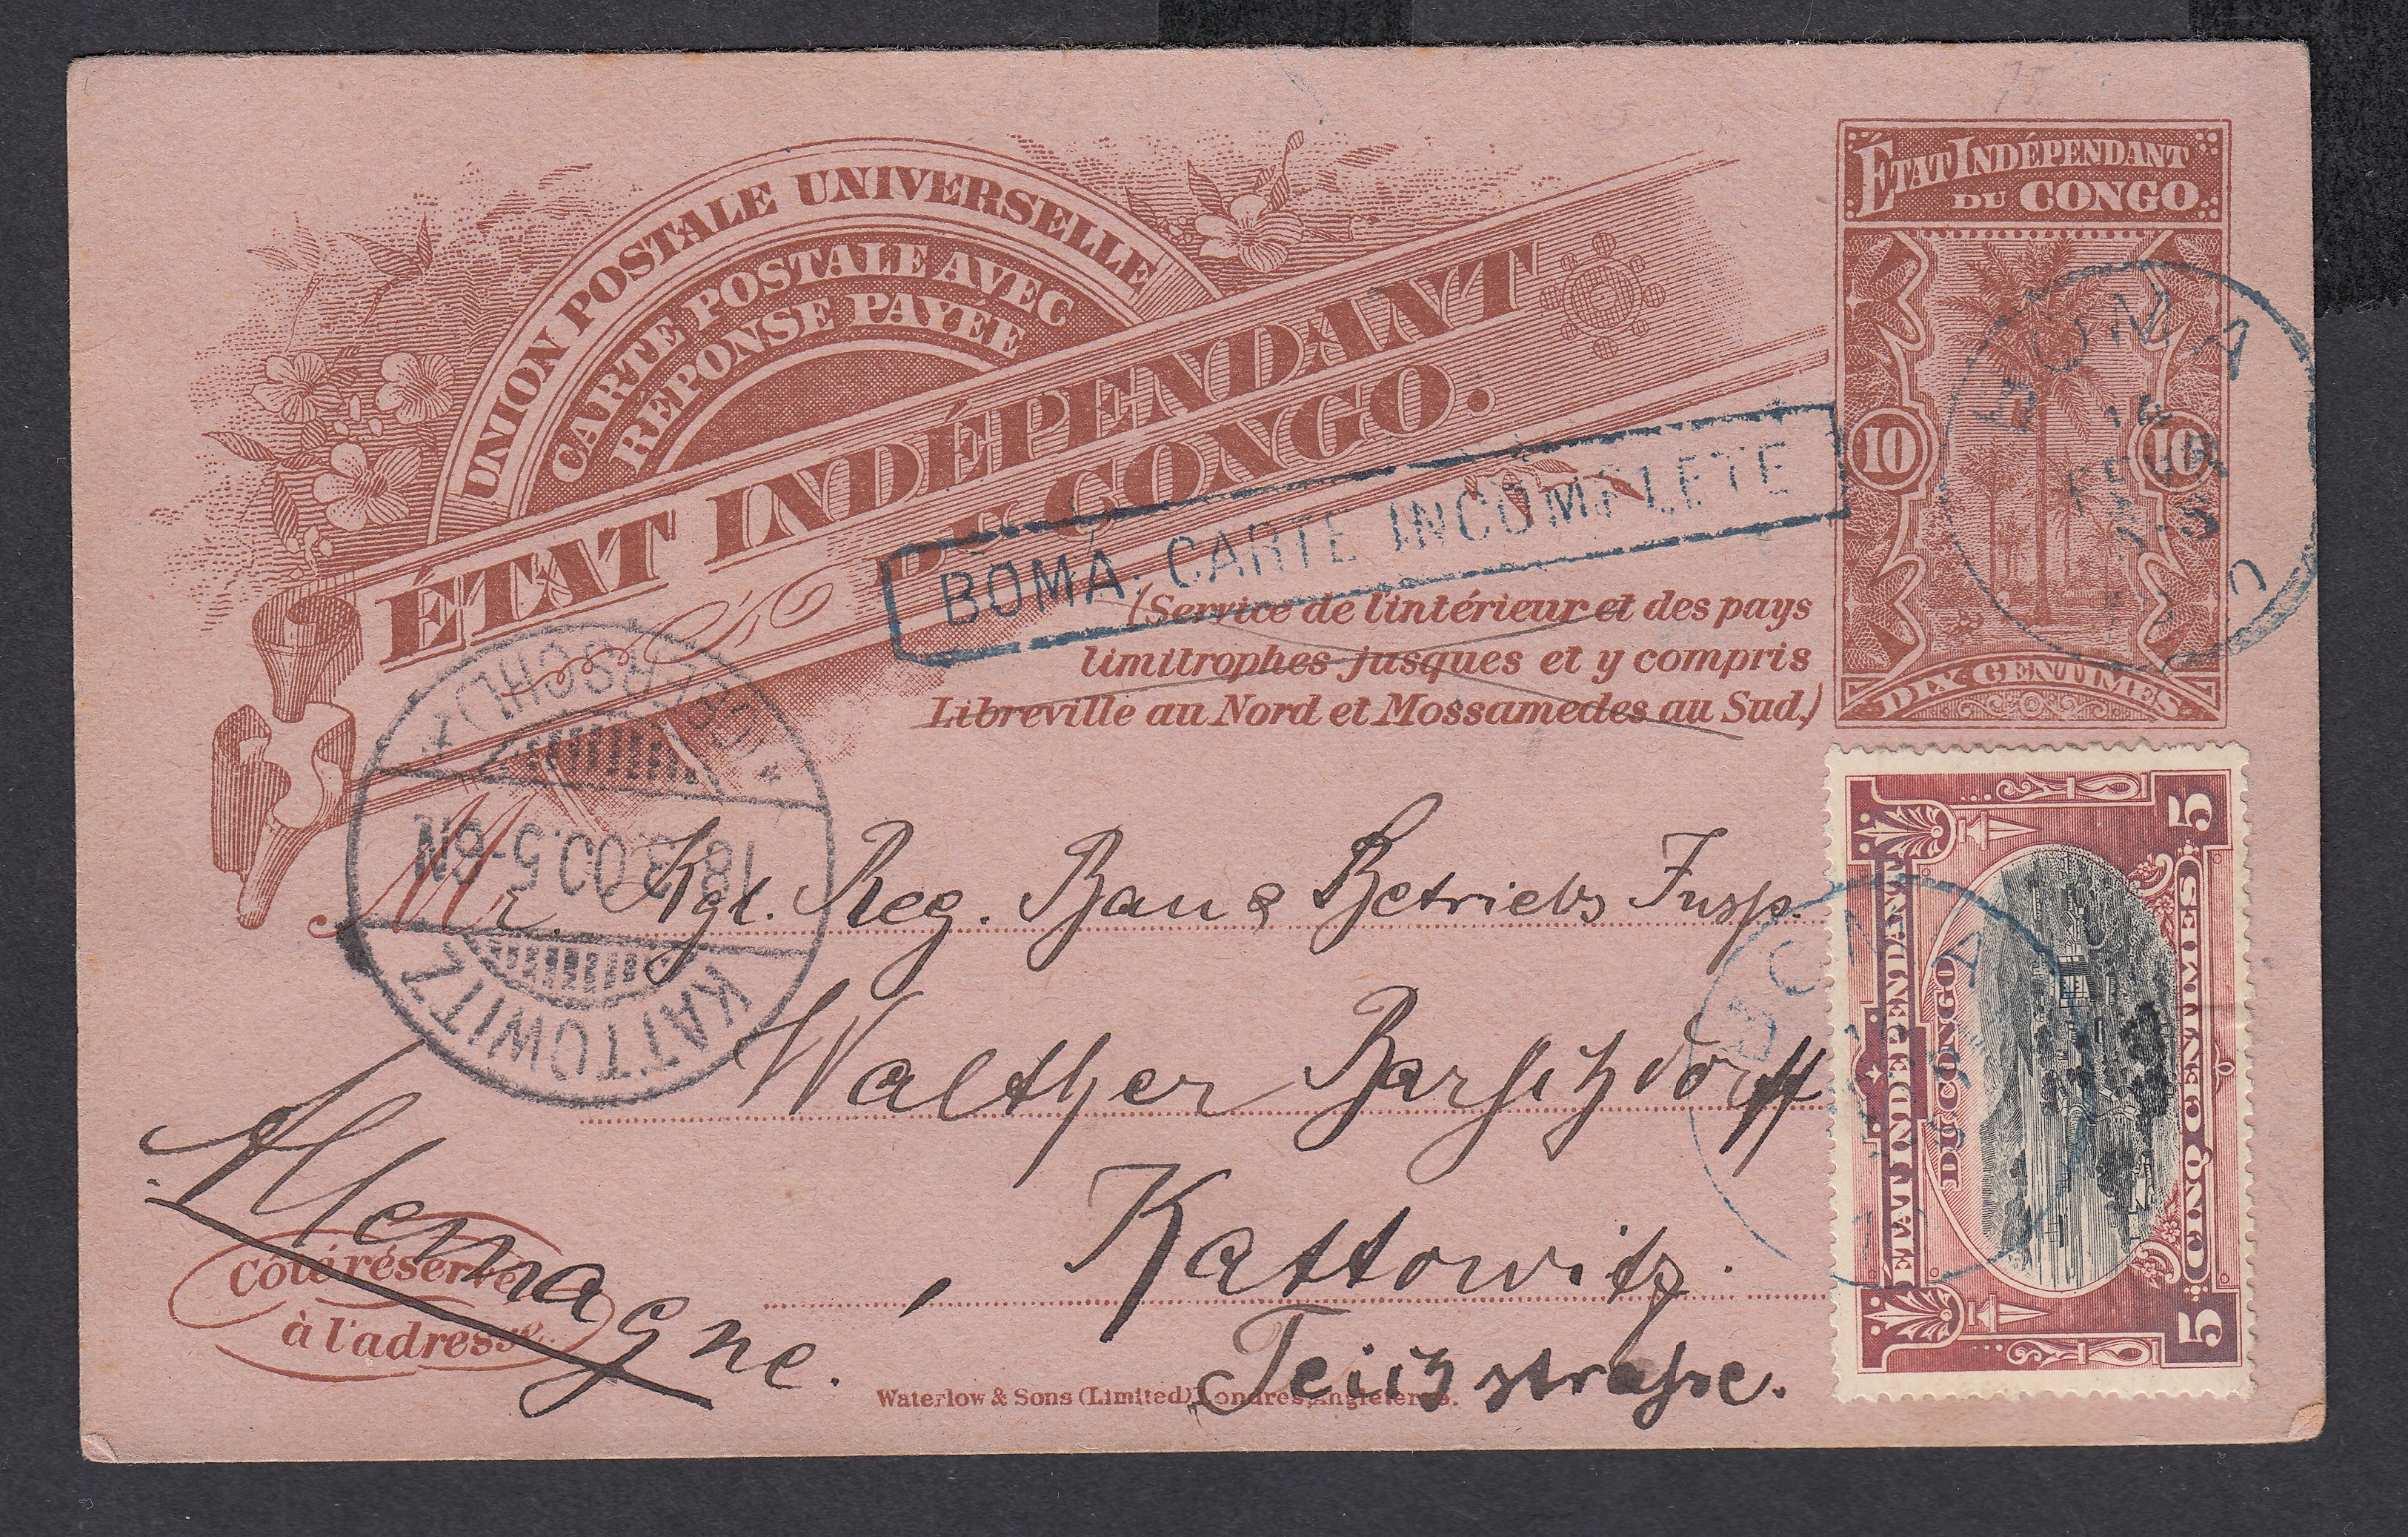 UNION POSTALE UNIVERSELLE
CARTE POSTALE AVEC
RÉPONSE PAYÉE
ÉTAT INDÉPENDANT
DU CONGO.
ÉTAT INDÉPENDANT
DU CONGO.
10 10
DIX CENTIMES
BOMA
FEVR
BOMA. CARTE INCOMPLETE
(Service de l'intérieur et des pays
limitrophes jusques et y compris
Libreville au Nord et Mossamedes au Sud.)
(OBERSCHL)
18.3.00.5-6N
KATTOWITZ
M r. Kgl. Reg. Bau & Betriebs Insp.
Walther
Kattowitz.
Teichstraße.
Allemagne.
Côté réservé
à l'adresse.
Waterlow & Sons (Limited) Londres, Angleterre.
ÉTAT INDÉPENDANT
DU CONGO
5 5
CINQ CENTIMES
BOMA